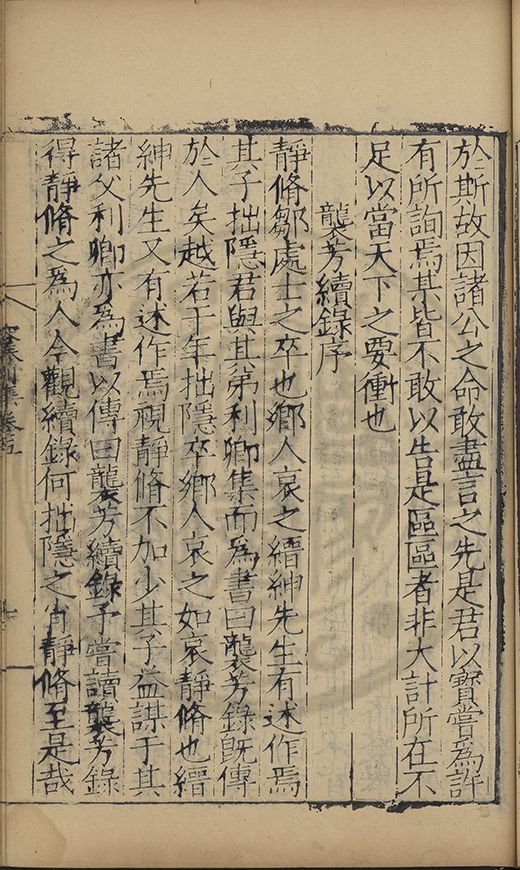 於斯故因諸公之命敢盡言之先是君以寳嘗為許
有所詢焉其皆不敢以告是區區者非大計所在不
足以當天下之要衝也
襲芳續錄序
靜脩鄒處士之卒也鄉人哀之縉紳先生有述作焉
其子拙隱君與其弟利卿集而為書曰襲芳錄既傳
於人矣越若干年拙隱卒鄉人哀之如哀靜脩也縉
紳先生又有述作焉視靜脩不加少其子益謀于其
諸父利卿亦為書以傳曰襲芳續錄予嘗讀襲芳錄
得靜脩之為人今觀續錄何拙隱之肖靜脩至是哉